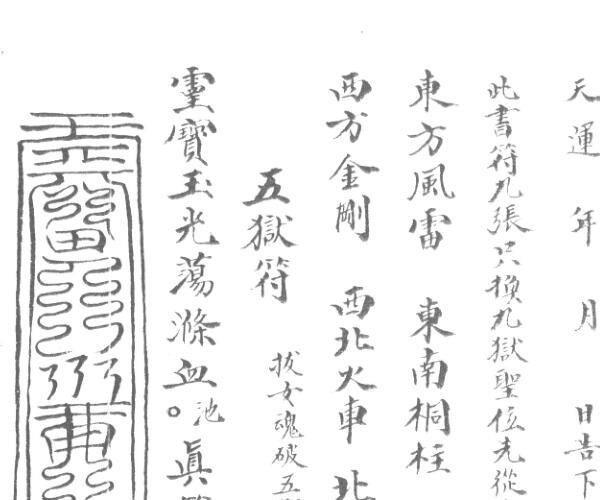 天運 年 月 日告下
此書符九張只換九獄聖位先從
東方風雷 東南桐柱
西方金剛 西北火車 北
五獄符 拔女魂破五
靈寶玉光蕩滌血池。真